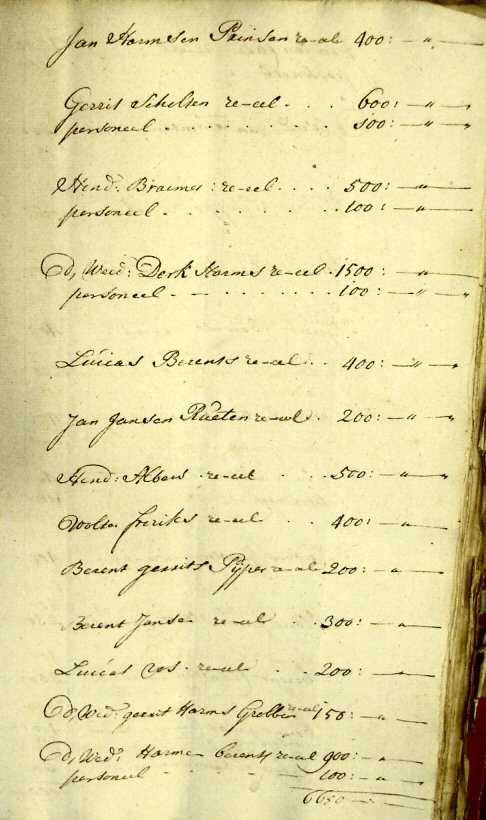 Jan Harmsen Prinsen re-eel 400: — " —
Gerrit Scholten re-eel . . . 600: — " —
personeel . . . . . . . 100: — " —
Hend: Braemer: re-eel . . . . 500: — " —
personeel . . . . . . . 100: — " —
D, Wed: Derk Harms re-eel . 1500: — " —
personeel . — . . . . . 100: — " —
Lúicas Berents re-eel . . 400: — " —
Jan Jansen Rúeten re-eel . 200: — " —
Hend: Albers . re-eel . . . 500: — " —
Wolter freriks re-eel . . 400: — " —
Berent gerrits Pÿper re-eel 200: — " —
Berent Jansen re-eel . 300: — " —
Lúicas vos . re-eel . . 200: — " —
D, Wed: gerrit Harms Grobben re-eel 150: — " —
D, Wed: Harmen berents re-eel 900: — " —
personeel . . . — 100: — " —
6650 — " —